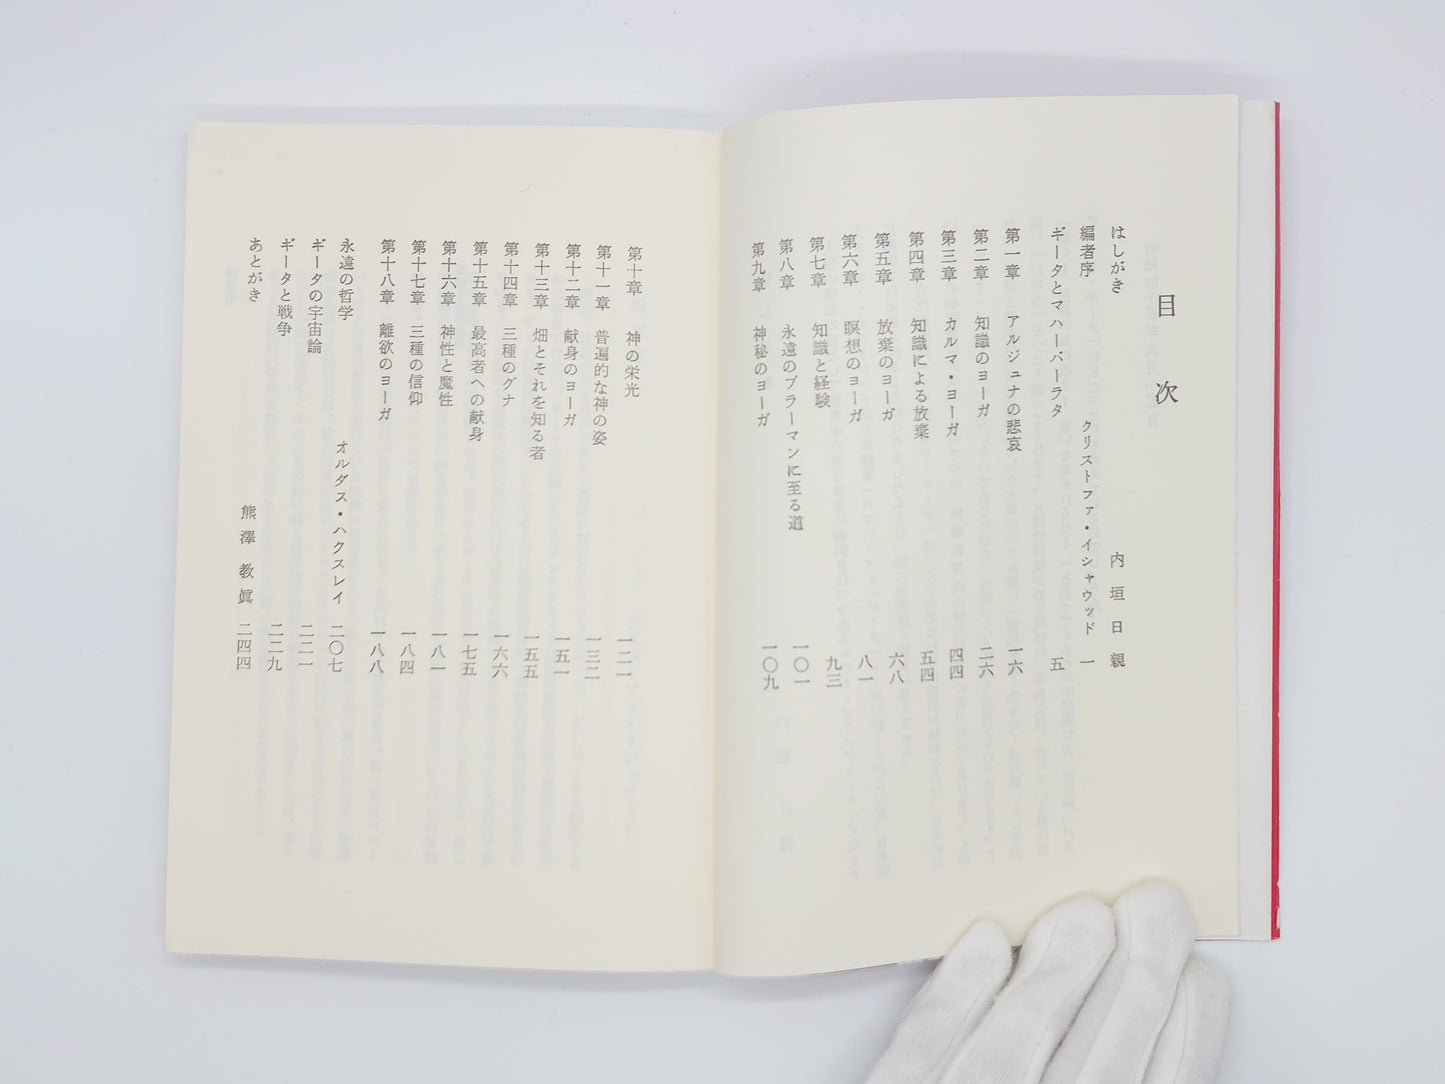 目次
はしがき 内垣日親
編者序 クリストファ・イシャウッド 一
ギータとマハーバーラタ 五
第一章 アルジュナの悲哀 一六
第二章 知識のヨーガ 二六
第三章 カルマ・ヨーガ 四四
第四章 知識による放棄 五四
第五章 放棄のヨーガ 六八
第六章 瞑想のヨーガ 八一
第七章 知識と経験 九三
第八章 永遠のブラーマンに至る道 一〇一
第九章 神秘のヨーガ 一〇九
第十章 神の栄光 一二一
第十一章 普遍的な神の姿 一三二
第十二章 献身のヨーガ 一五一
第十三章 畑とそれを知る者 一五五
第十四章 三種のグナ 一六六
第十五章 最高者への献身 一七五
第十六章 神性と魔性 一八一
第十七章 三種の信仰 一八四
第十八章 離欲のヨーガ 一八八
永遠の哲学 オルダス・ハクスレイ 二〇七
ギータの宇宙論 二二一
ギータと戦争 二二九
あとがき 熊澤教眞 二四四